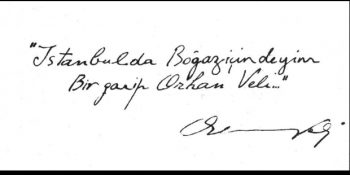 "İstanbulda Boğaziçindeyim
Bir garip Orhan Veli..."